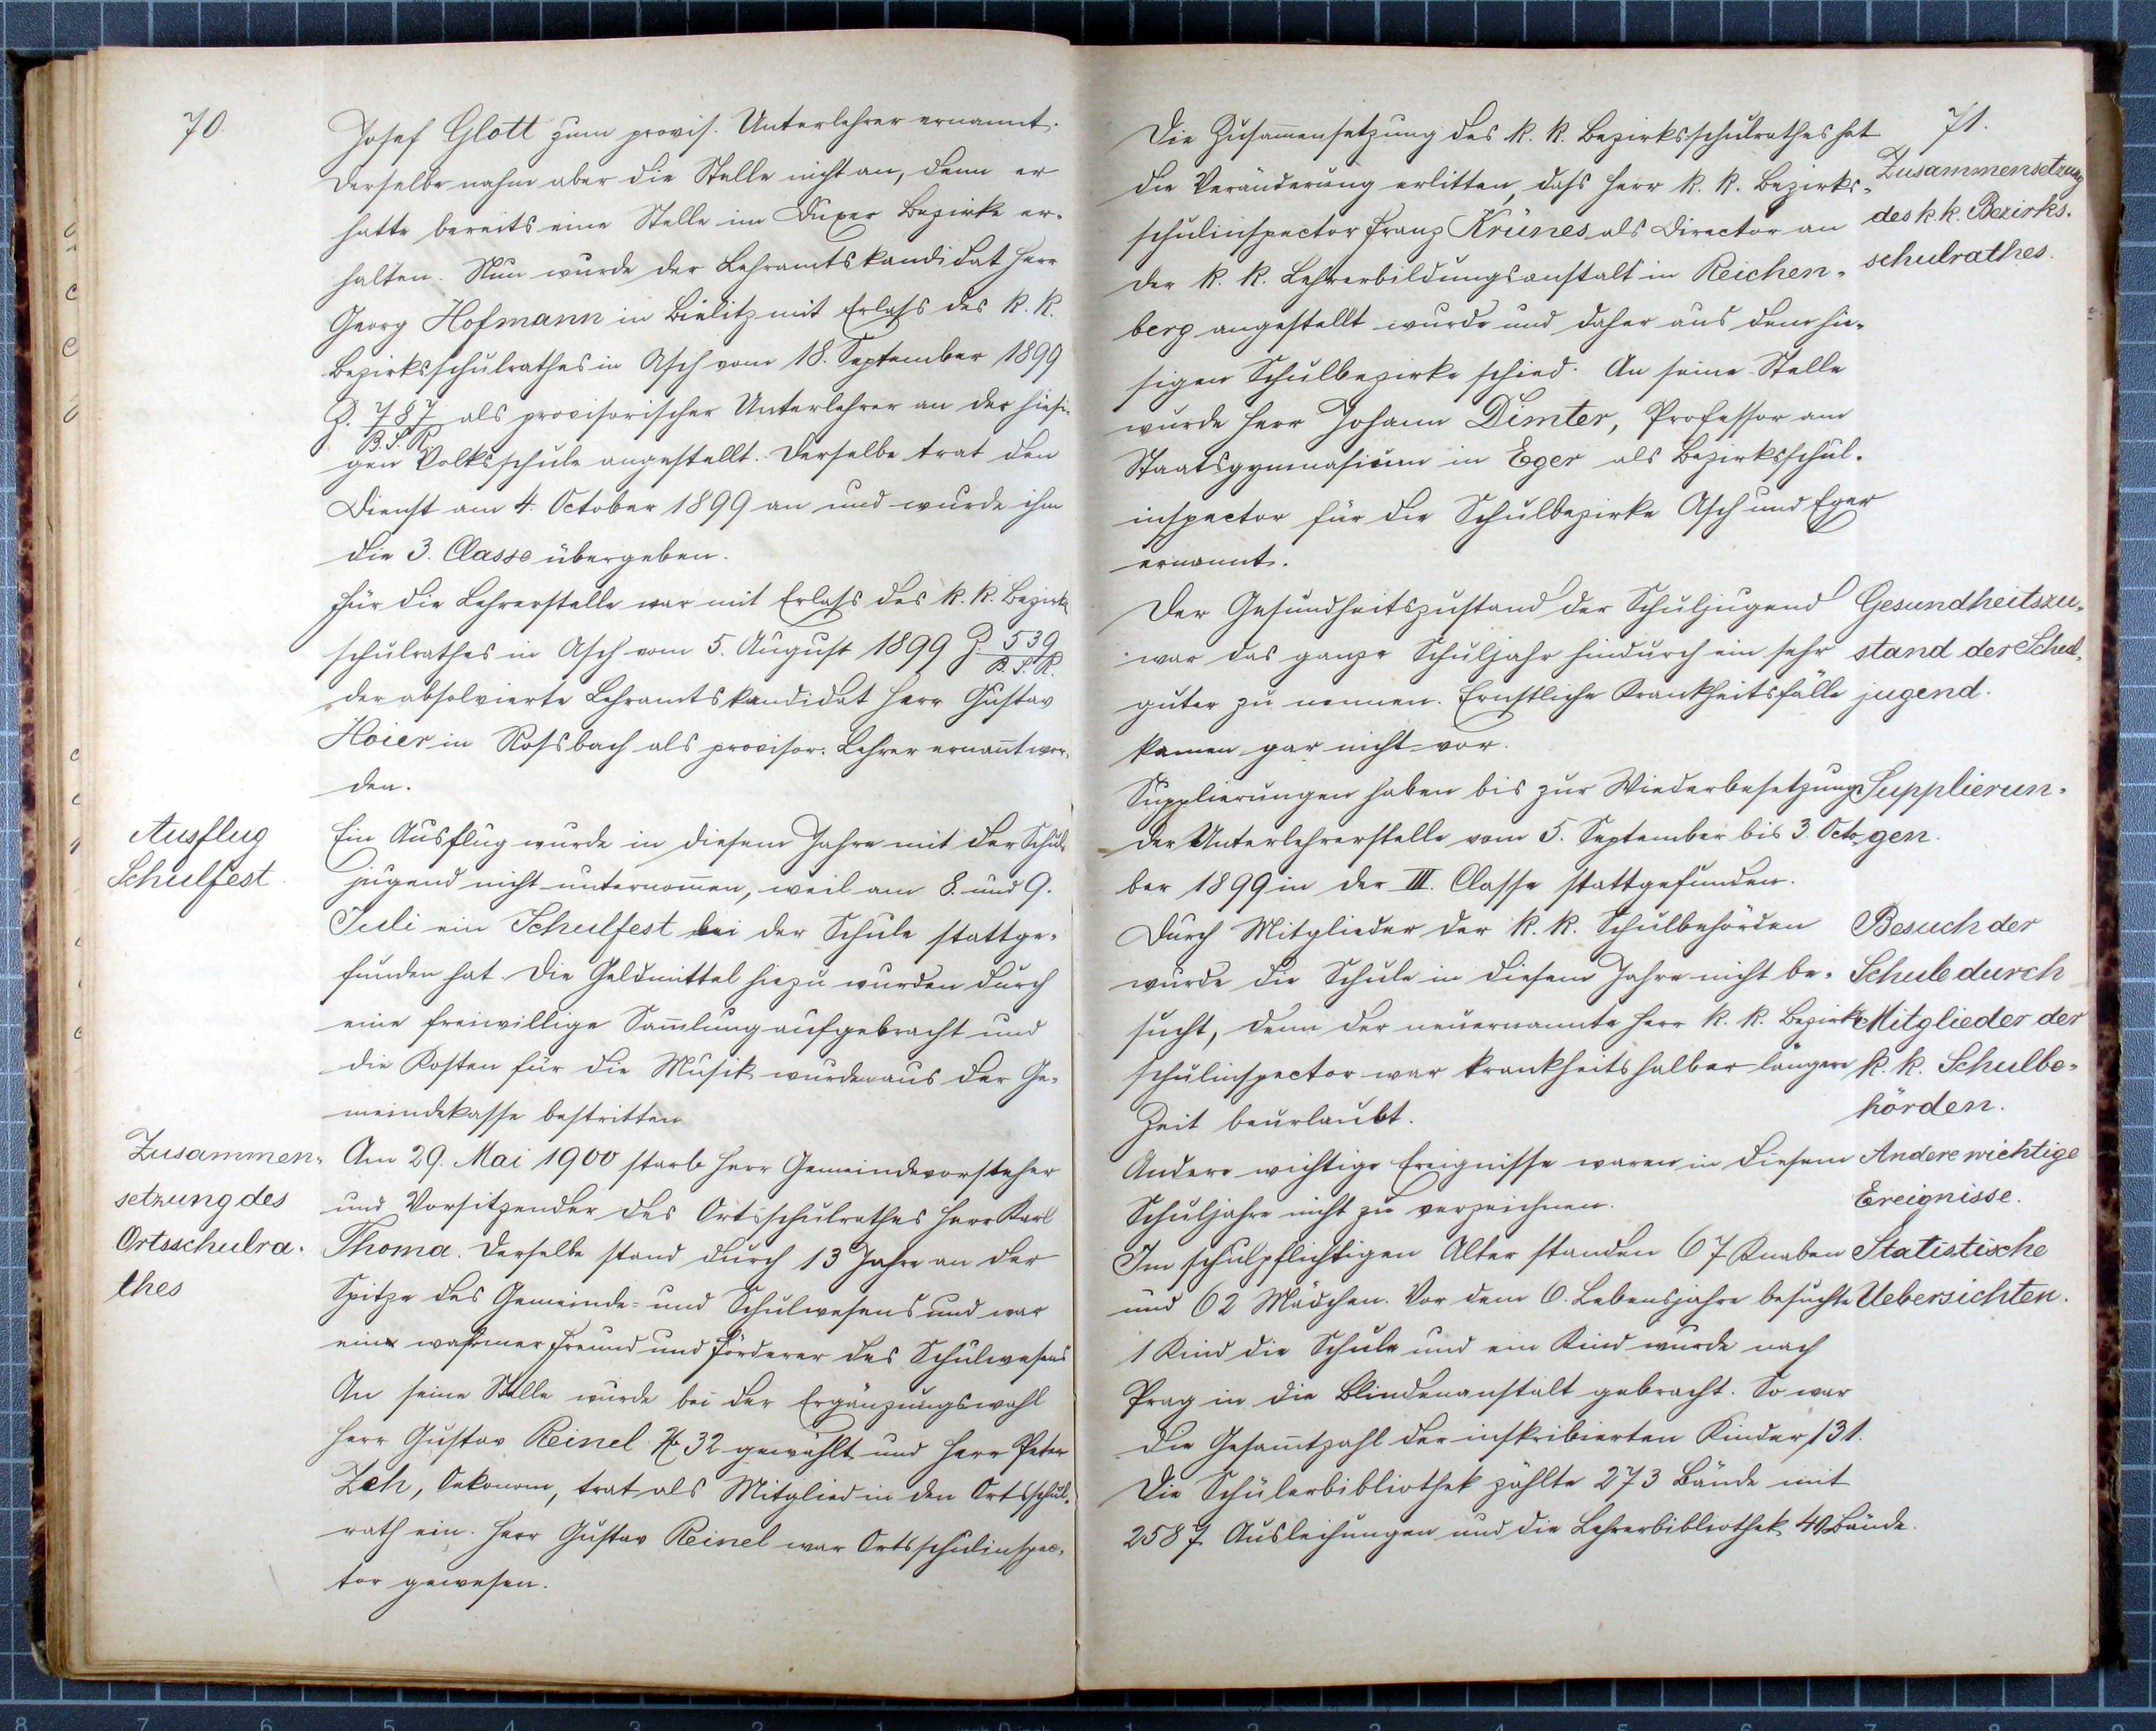 70.
Josef Glott zum provis. Unterlehrer ernannt.
Derselbe nahm aber die Stelle nicht an, denn er
hatte bereits eine Stelle im Duxer Bezirke er-
halten. Nun wurde der Lehramtskandidat Herr
Georg Hofmann in Bielitz mit Erlaß des k. k.
Bezirksschulrathes in Asch vom 18. September 1899
Z. 787/B.S.R. als provisorischer Unterlehrer an der hiesi-
gen Volksschule angestellt. Derselbe trat den
Dienst am 4. October 1899 an und wurde ihm
die 3. Classe übergeben.
Für die Lehrerstelle war mit Erlaß des k. k. Bezirks
schulrathes in Asch vom 5. August 1899 Z. 539/B.S.R.
der absolvierte Lehramtskandidat Herr Gustav
Hoier in Roßbach als provisor. Lehrer ernan̄t wor-
den.
Ausflug
Schulfest.
Ein Ausflug wurde in diesem Jahre mit der Schul-
jugend nicht unternom̄en, weil am 8. und 9.
Juli ein Schulfest bei der Schule stattge-
funden hat. Die Geldmittel hiezu wurden durch
eine freiwillige Sam̄lung aufgebracht und
die Kosten für die Musik wurden aus der Ge-
meindekasse bestritten
Zusammen-
setzung des
Ortsschulra-
thes
Am 29. Mai 1900 starb Herr Gemeindevorsteher
und Vorsitzender des Ortsschulrathes Herr Karl
Thoma. Derselbe stand durch 13 Jahre an der
Spitze des Gemeinde- und Schulwesens und war
ein wahrmer Freund und Förderer des Schulwesens
An seine Stelle wurde bei der Ergänzungswahl
Herr Gustav Reinel No 32 gewählt und Herr Peter
Zeh, Oekonom, trat als Mitglied in den Ortsschul-
rath ein. Herr Gustav Reinel war Ortsschulinspec-
tor gewesen.
71.
Die Zusam̄ensetzung des k. k. Bezirksschulrathes hat
die Veränderung erlitten, daß Herr k. k. Bezirks-
schulinspector Franz Krünes als Director an
der k. k. Lehrerbildungsanstalt in Reichen-
berg angestellt wurde und daher aus dem hie-
sigen Schulbezirke schied. An seine Stelle
wurde Herr Johann Dimter, Professor am
Staatsgymnasium in Eger als Bezirksschul-
inspector für die Schulbezirke Asch und Eger
ernannt.
Zusammensetzung
des k. k. Bezirks-
schulrathes.
Der Gesundheitszustand der Schuljugend
war das ganze Schuljahr hindurch ein sehr
guter zu nennen. Ernstliche Krankheitsfälle
kamen gar nicht vor.
Gesundheitszu-
stand der Schul-
jugend.
Supplierungen haben bis zur Wiederbesetzung
der Unterlehrerstelle vom 5. September bis 3. Octo-
ber 1899 in der III. Classe stattgefunden.
Supplierun-
gen.
Durch Mitglieder der k. k. Schulbehörden
wurde die Schule in diesem Jahre nicht be-
sucht, denn der neuernannte Herr k. k. Bezirks-
schulinspector war krankheitshalber längere
Zeit beurlaubt.
Besuch der
Schule durch
Mitglieder der
k. k. Schulbe-
hörden.
Andere wichtige Ereignisse waren in diesem
Schuljahre nicht zu verzeichnen.
Andere wichtige
Ereignisse.
Im schulpflichtigen Alter standen 67 Knaben
und 62 Mädchen. Vor dem 6. Lebensjahre besuchte
1 Kind die Schule und ein Kind wurde nach
Prag in die Blindenanstalt gebracht. So war
die Gesam̄tzahl der inskribierten Kinder 131.
Die Schülerbibliothek zählte 273 Bände mit
2587 Ausleihungen und die Lehrerbibliothek 40 Bände.
Statistische
Uebersichten.